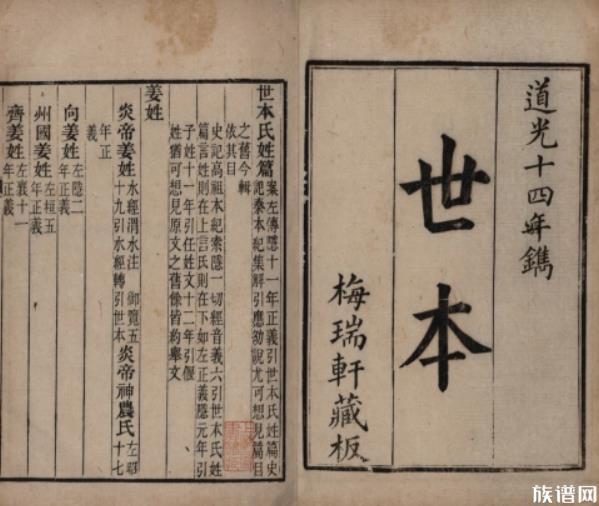 道光十四年鐫
世本
梅瑞軒藏板
世本氏姓篇 案左傳隱十一年正義引世本氏姓篇史
記秦本紀集解引應劭說尤可想見篇目
之舊今輯
依其目
史記高祖本紀索隱一切經音義六引世本氏姓
篇言姓則在上言氏則在下如左正義隱元年引
子姓十一年引任姓文十二年引偃
姓猶可想見原文之舊餘皆約舉文
姜姓
炎帝姜姓 水經渭水注 御覽五
十九引水經轉引世本 炎帝神農氏 左昭
十七
年正
義
向姜姓 左隱二
年正義
州國姜姓 左桓五
年正義
齊姜姓 左襄十一
年正義
族谱网